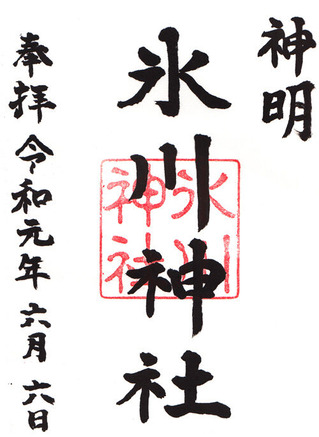 神明
氷川神社
氷川
神社
奉拝 令和元年 六月 六日